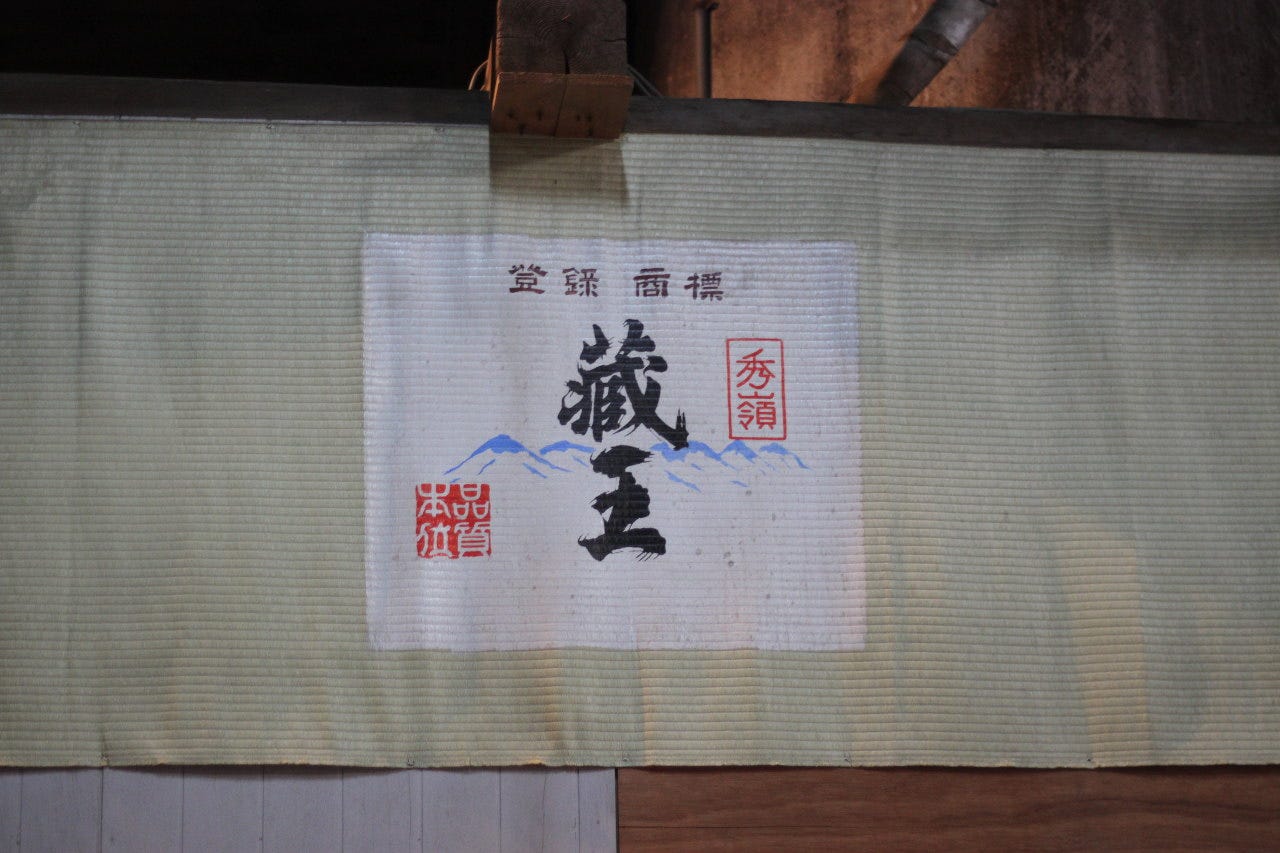 登録 商標
秀嶺
蔵王
品質
本位